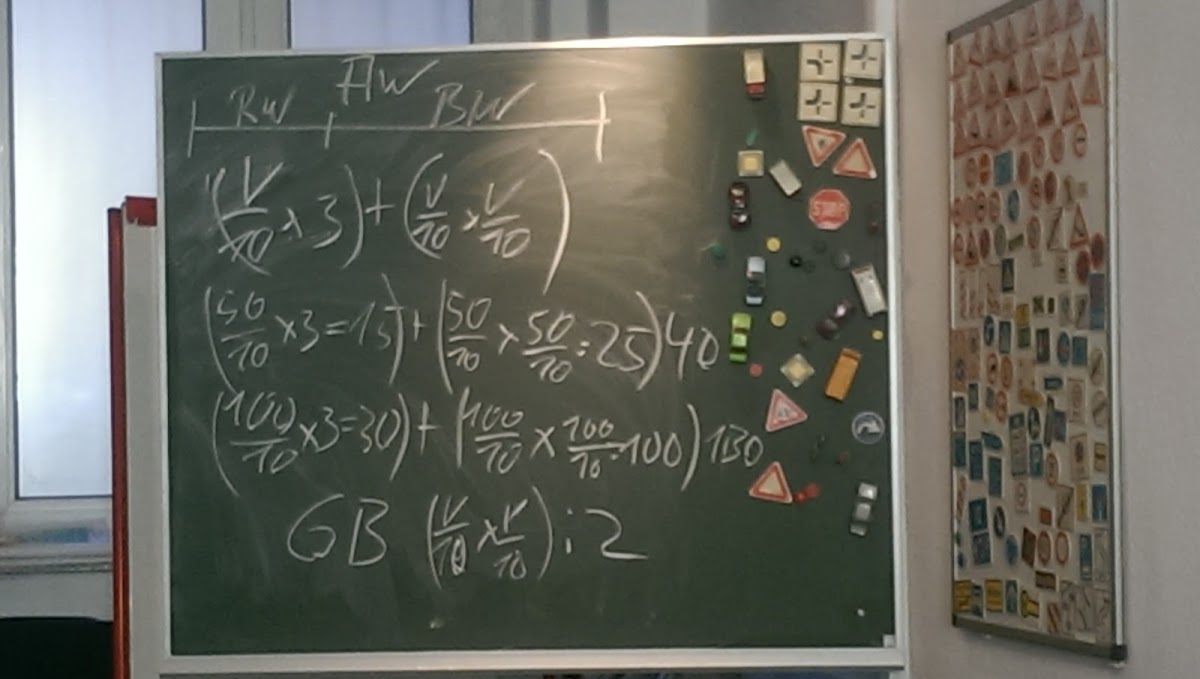 AW
RW BW
(V/10 × 3) + (V/10 × V/10)
(50/10 × 3 = 15) + (50/10 × 50/10 = 25) 40
(100/10 × 3 = 30) + (100/10 × 100/10 = 100) 130
GB (V/10 × V/10) : 2
STOP